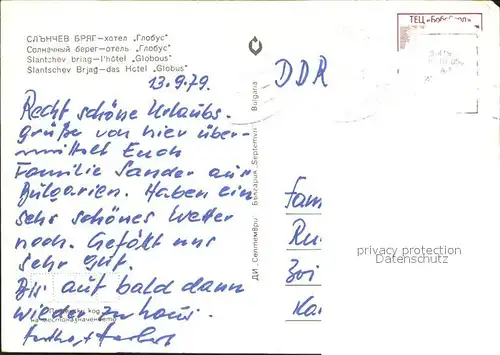 СЛЪНЧЕВ БРЯГ—хотел „Глобус"
Солнечный берег—отель „Глобус"
Slantchev briag—l'hôtel "Globus"
Slantschev Brjag—das Hotel "Globus"
13.9.79.
Recht schöne Urlaubs-
grüße von hier über-
mittelt Euch
Familie Sander aus
Bulgarien. Haben ein
sehr schönes Wetter
noch. Gefällt uns
sehr gut.
Bis auf bald dann
wieder zu haus.
ДИ „Септември" България „Septemvri" Bulgaria
ТЕЦ
DDR
Fam
Ru
Ka
privacy protection
Datenschutz
код
на местоназначението